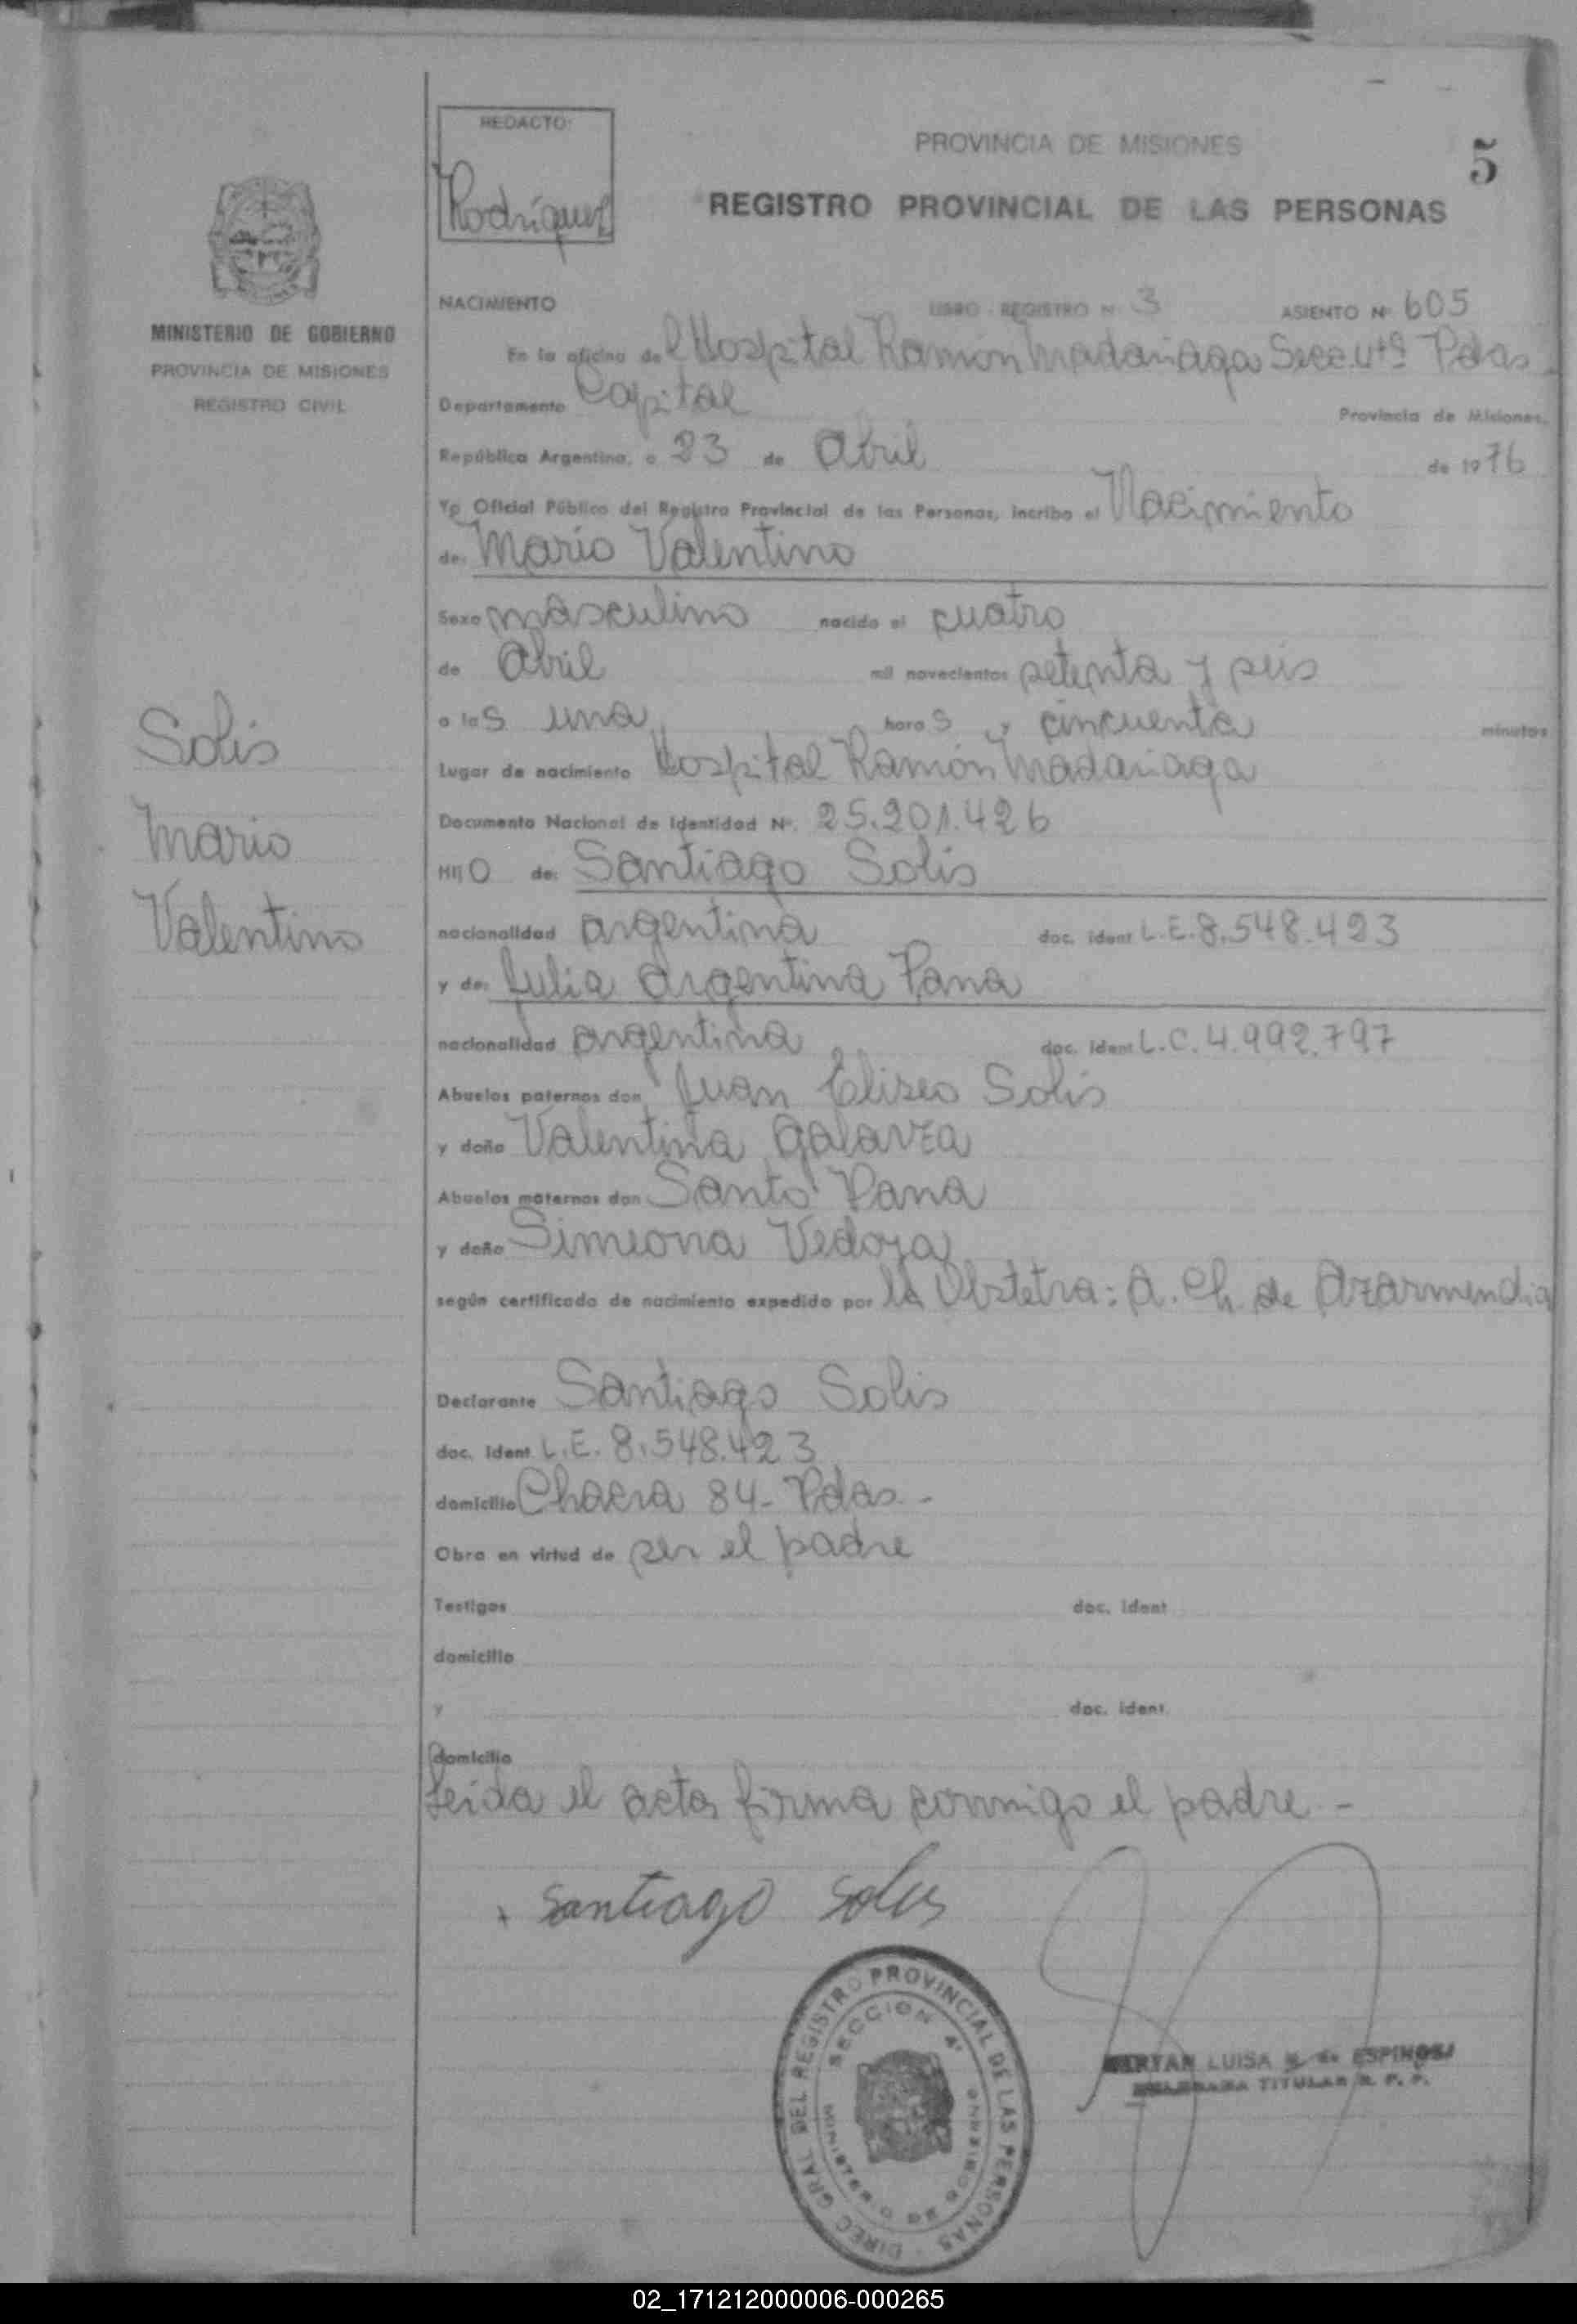 REDACTO:
Rodríguez
PROVINCIA DE MISIONES
5
REGISTRO PROVINCIAL DE LAS PERSONAS
MINISTERIO DE GOBIERNO
PROVINCIA DE MISIONES
REGISTRO CIVIL
NACIMIENTO LIBRO - REGISTRO N° 3 ASIENTO N° 605
En la oficina del Hospital Ramón Madariaga Secc. 4ta Pdas
Departamento Capital Provincia de Misiones,
República Argentina, a 23 de Abril de 1976
Yo Oficial Público del Registro Provincial de las Personas, incribo el Nacimiento
de: Mario Valentino
Sexo masculino nacido el cuatro
de Abril mil novecientos setenta y seis
a las una horas y cincuenta minutos
Lugar de nacimiento Hospital Ramón Madariaga
Documento Nacional de Identidad N°. 25.201.426
HIJO de: Santiago Solis
nacionalidad argentina doc. ident L.E. 8.548.423
y de: Julia Argentina Pana
nacionalidad argentina doc. ident L.C. 4.992.797
Abuelos paternos don Juan Eliseo Solis
y doña Valentina Galarza
Abuelos maternos don Santo Pana
y doña Simeona Vedoya
según certificado de nacimiento expedido por la Obstetra: A. Ch. de Azarmendia
Solis
Mario
Valentino
Declarante Santiago Solis
doc. ident L.E. 8.548.423
domicilio Chacra 84 - Pdas. -
Obra en virtud de ser el padre
Testigos doc. ident
domicilio
y doc. ident.
domicilio
Leida el acta firma conmigo el padre -
Santiago Solis
DIREC. GRAL. DEL REGISTRO PROVINCIAL DE LAS PERSONAS
SECCION 4ª
MINISTERIO DE GOBIERNO
LUISA de ESPINOSA
TITULAR R. P. P.
02_171212000006-000265